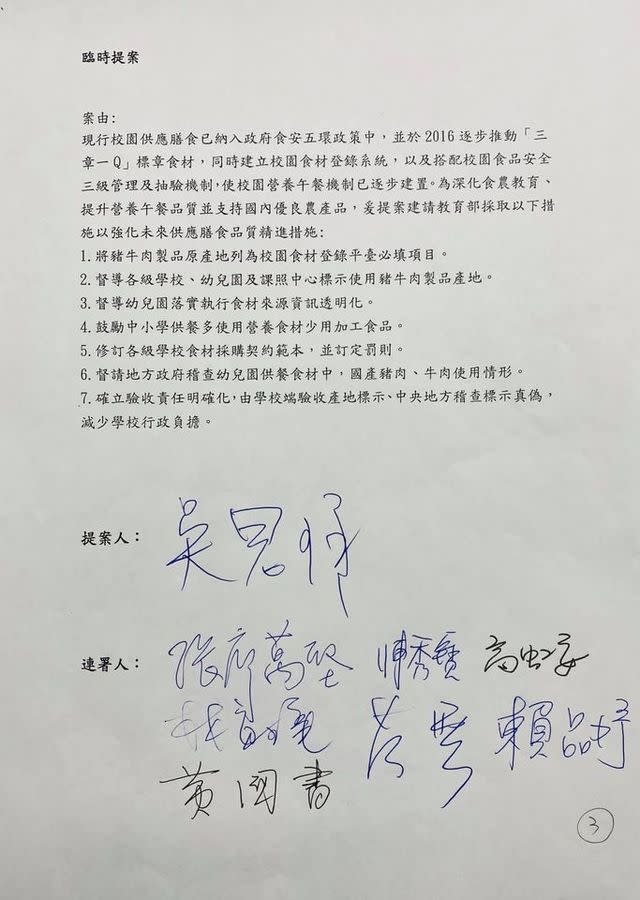 臨時提案
案由:
現行校園供應膳食已納入政府食安五環政策中，並於 2016 逐步推動「三
章一 Q」標章食材，同時建立校園食材登錄系統，以及搭配校園食品安全
三級管理及抽驗機制，使校園營養午餐機制已逐步建置。為深化食農教育、
提升營養午餐品質並支持國內優良農產品，爰提案建請教育部採取以下措
施以強化未來供應膳食品質精進措施:
1.將豬牛肉製品原產地列為校園食材登錄平臺必填項目。
2.督導各級學校、幼兒園及課照中心標示使用豬牛肉製品產地。
3.督導幼兒園落實執行食材來源資訊透明化。
4.鼓勵中小學供餐多使用營養食材少用加工食品。
5.修訂各級學校食材採購契約範本，並訂定罰則。
6.督請地方政府稽查幼兒園供餐食材中，國產豬肉、牛肉使用情形。
7.確立驗收責任明確化，由學校端驗收產地標示、中央地方稽查標示真偽，
減少學校行政負擔。
提案人：
吳思瑤
連署人：
張廖萬堅 陳秀寳 高虹安
范雲 賴品妤
黃國書
3